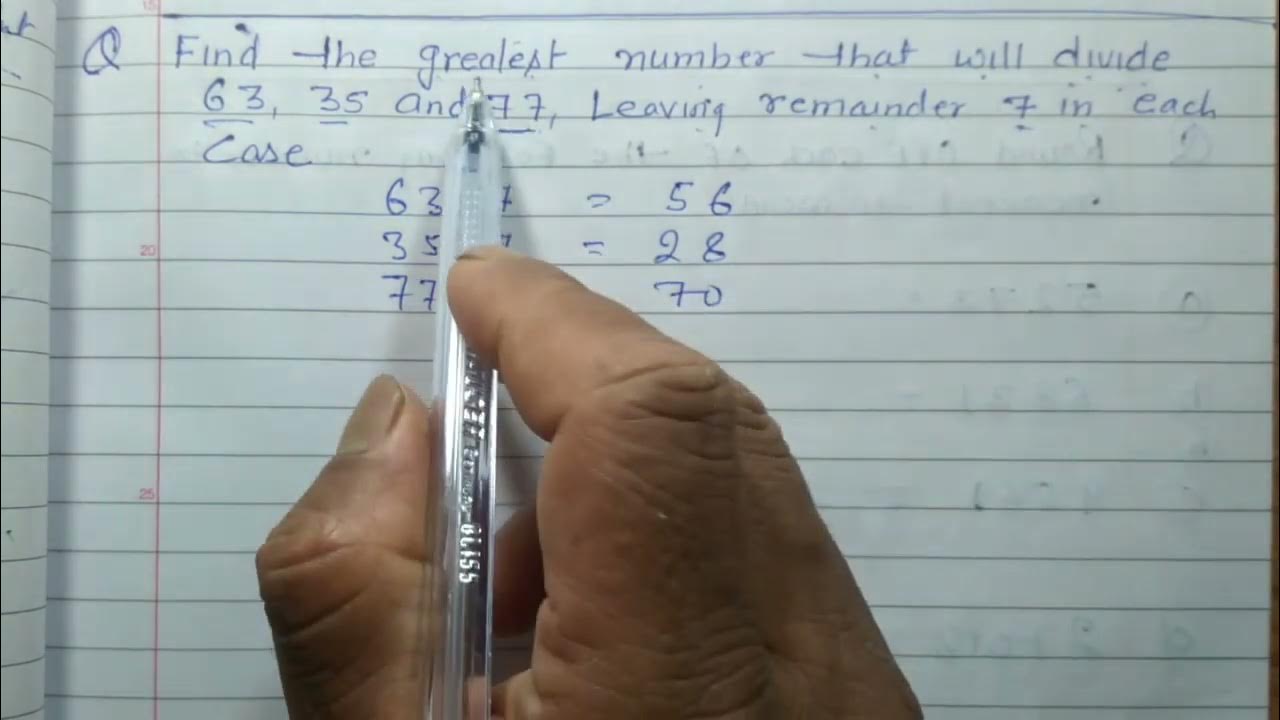 15
Q Find the greatest number that will divide
63, 35 and 77, Leaving remainder 7 in each
Case
63 7 = 56
20
35 7 = 28
77 70
25
BLISS